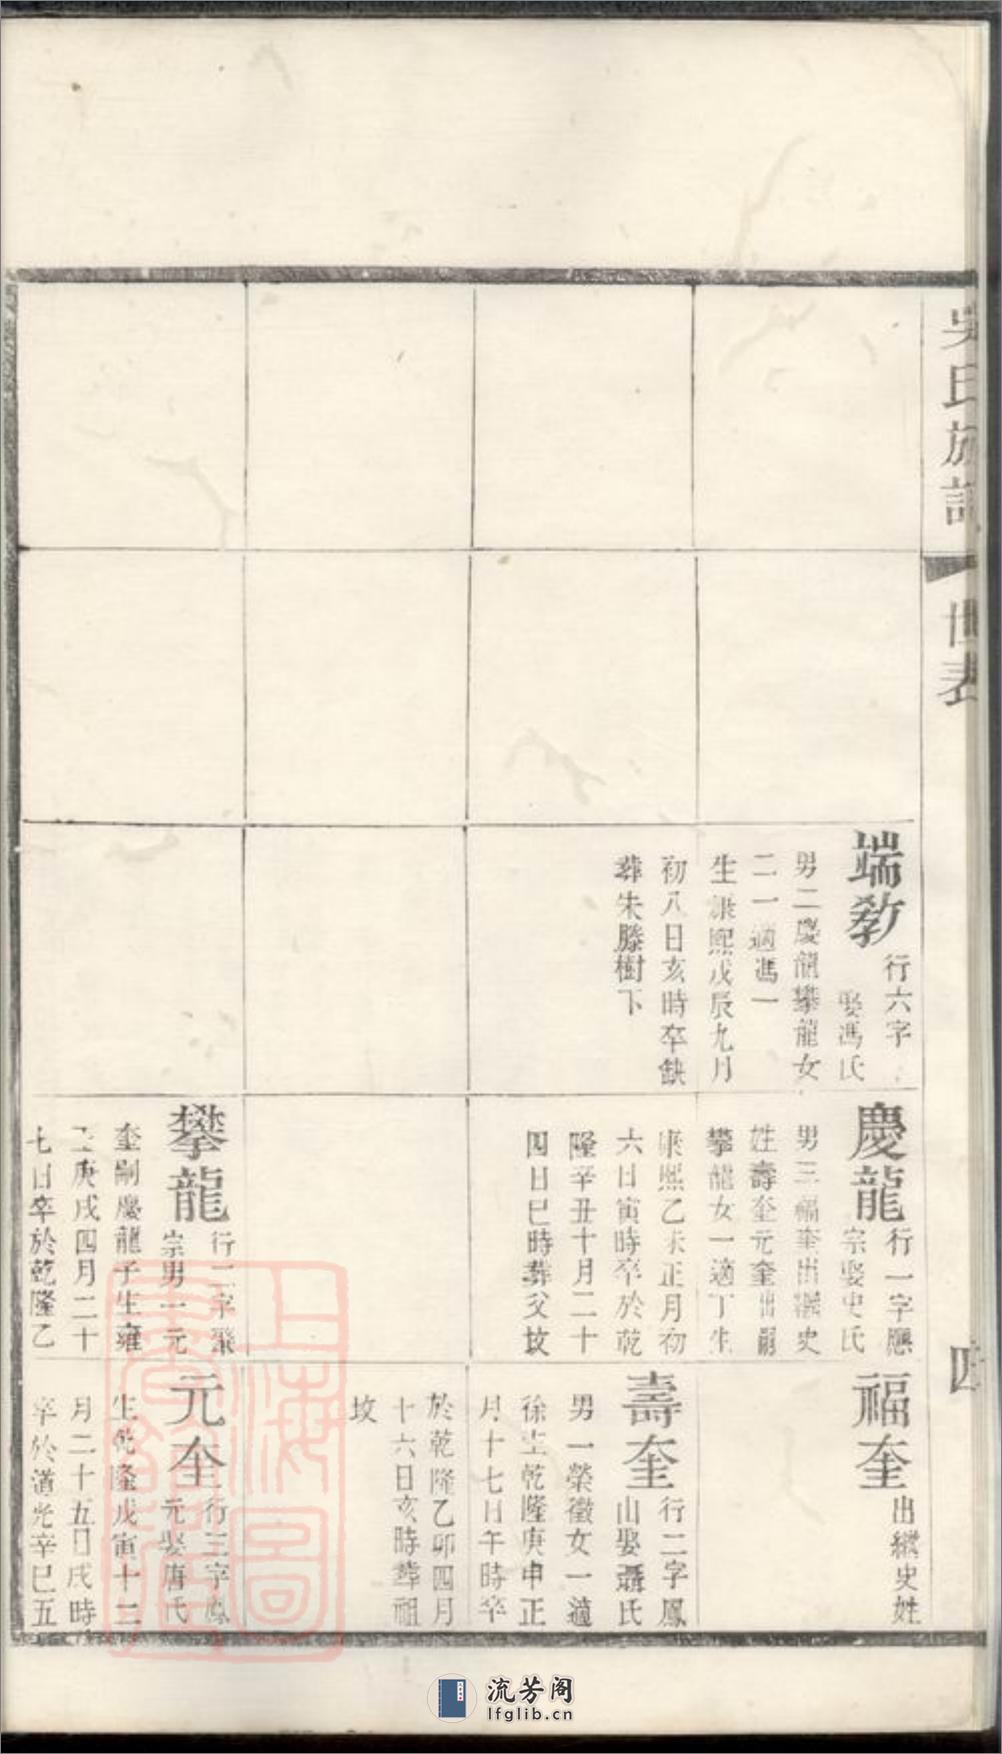 吳氏族譜
世表
四
端教
行六字
娶馮氏
男二慶龍攀龍女
二一適馮一
生康熙戊辰九月
初八日亥時卒缺
葬朱滕樹下
慶龍
行一字應
宗娶史氏
男三福奎出繼史
姓壽奎元奎出嗣
攀龍女一適丁生
康熙乙未正月初
六日寅時卒於乾
隆辛丑十月二十
四日巳時葬父坟
攀龍
行二字飛
宗男一元
奎嗣慶龍子生雍
正庚戌四月二十
七日卒於乾隆乙
福奎
出繼史姓
壽奎
行二字鳳
山娶聶氏
男一榮徵女一適
徐生乾隆庚申正
月十七日午時卒
於乾隆乙卯四月
十六日亥時葬祖
坟
元奎
行三字鳳
元娶唐氏
生乾隆戊寅十二
月二十五日戌時
卒於道光辛巳五
上海圖書館藏
流芳阁
lfglib.cn